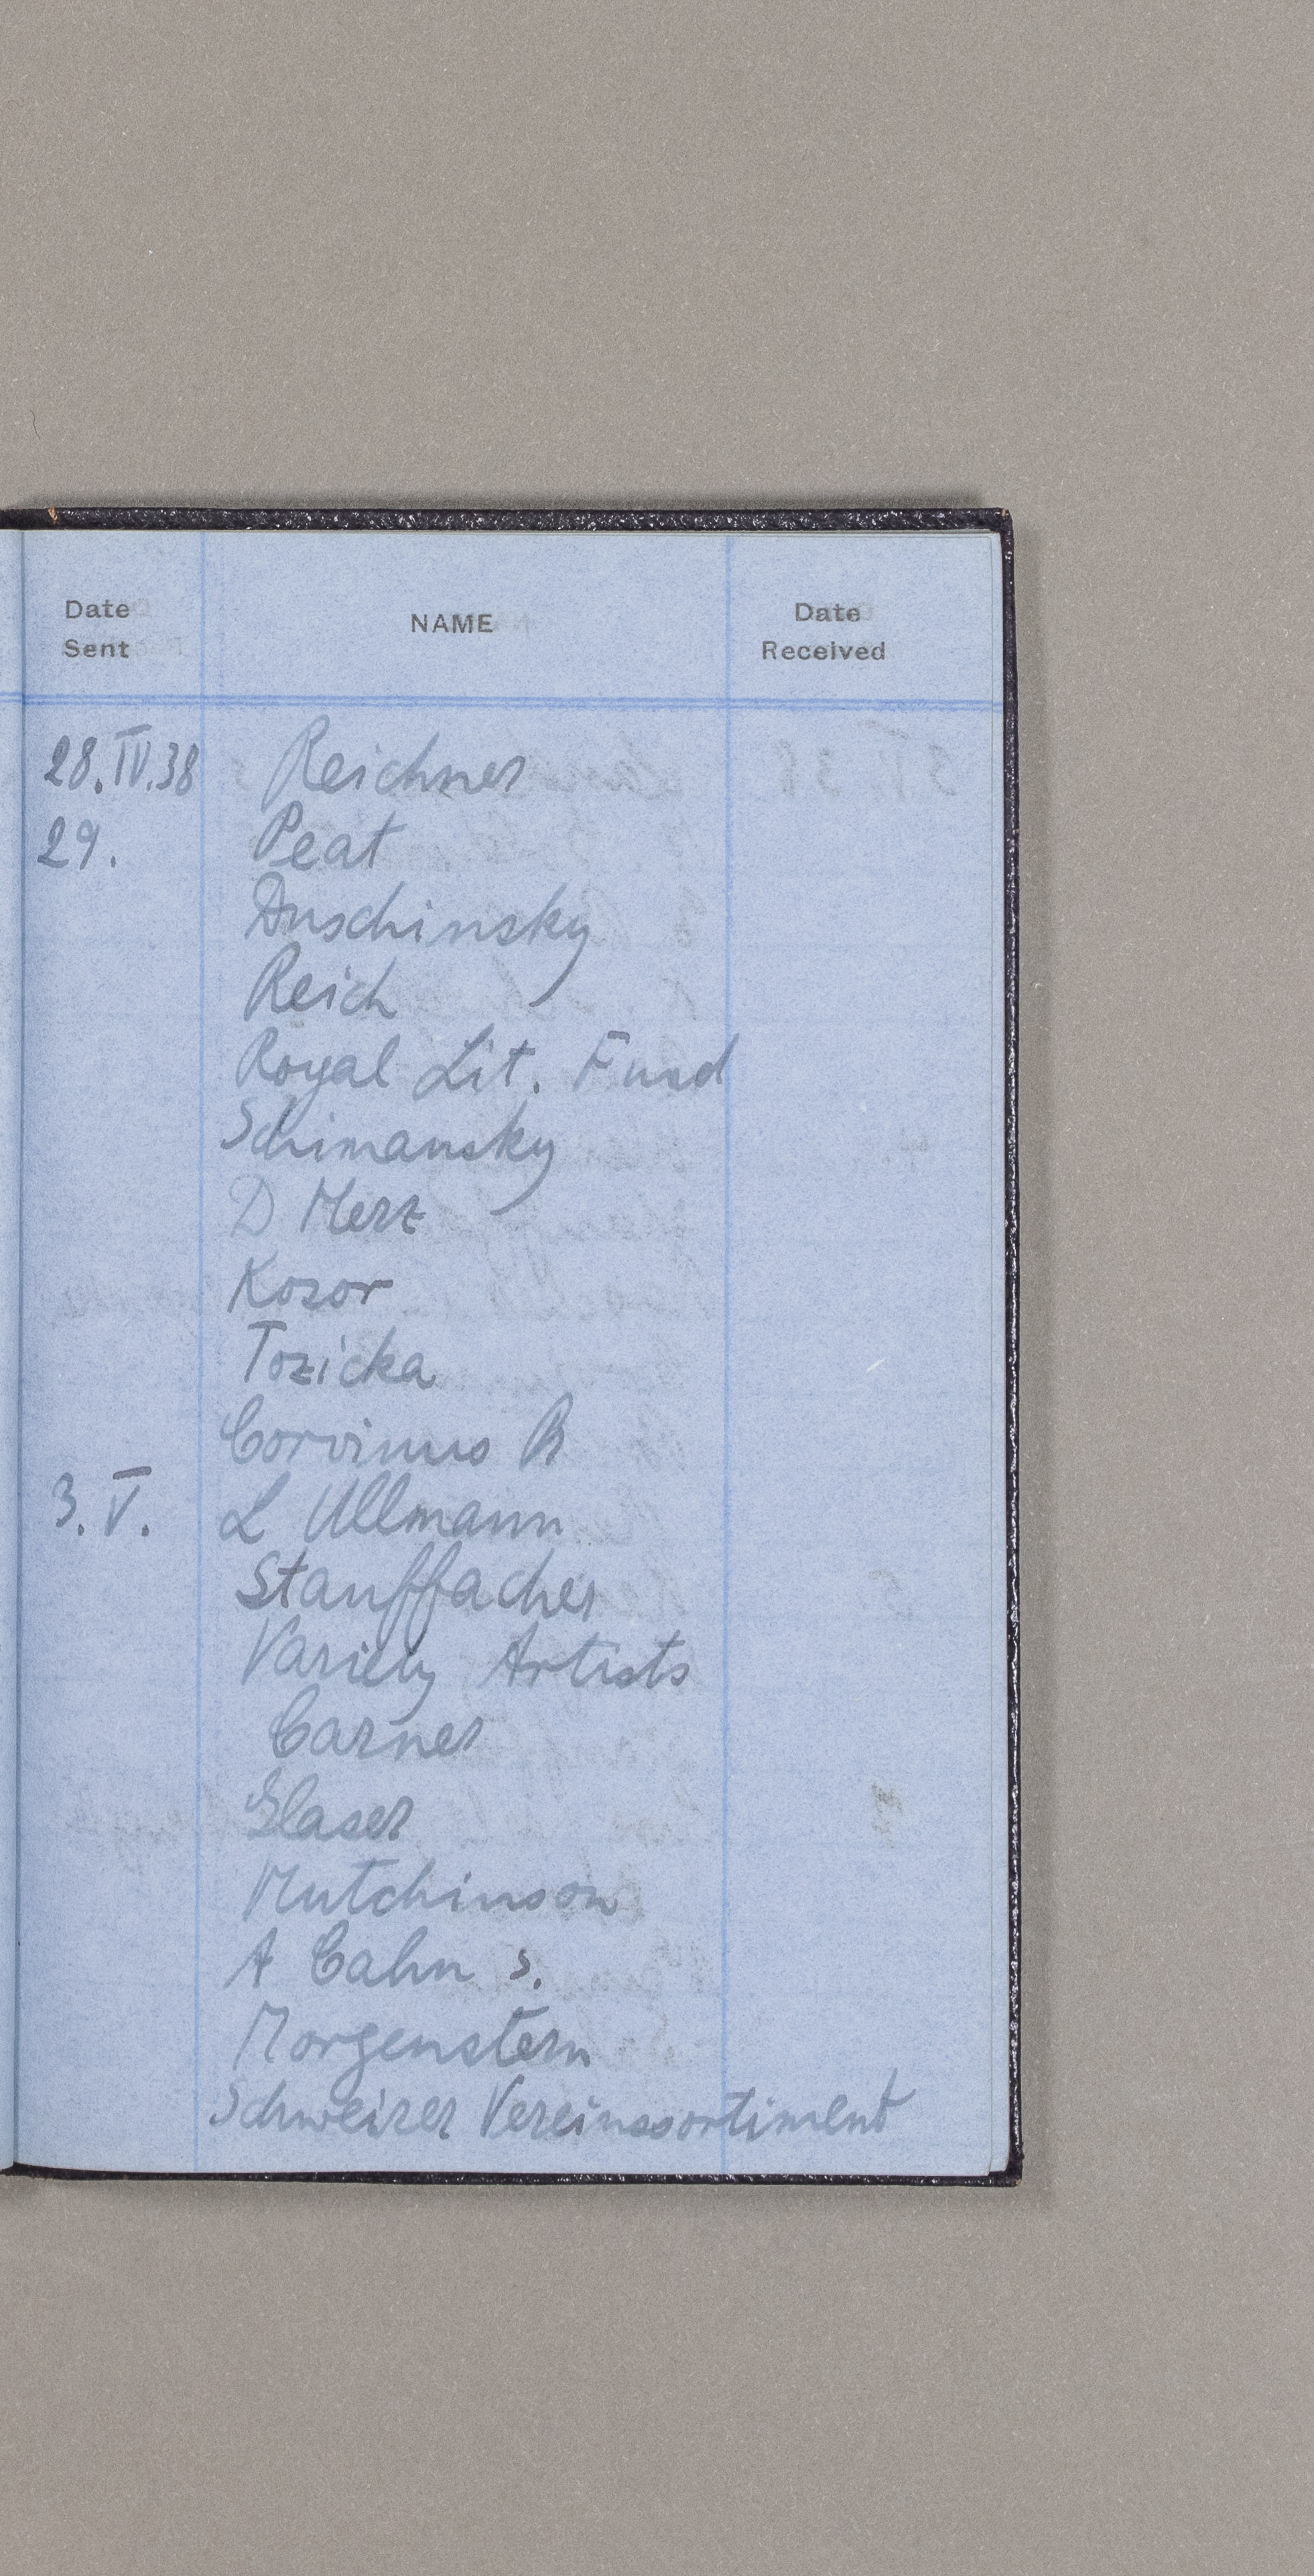 Date Sent NAME Date Received
28.IV.38 Reichner
29. Peat
Duschinsky
Reich
Royal Lit. Fund
Schimansky
D Merz
Kosor
Tozicka
Corvinus B
3.V. L Ullmann
Stauffacher
Variety Artists
Carner
Glaser
Hutchinson
A Cahn s.
Morgenstern
Schweizer Vereinssortiment